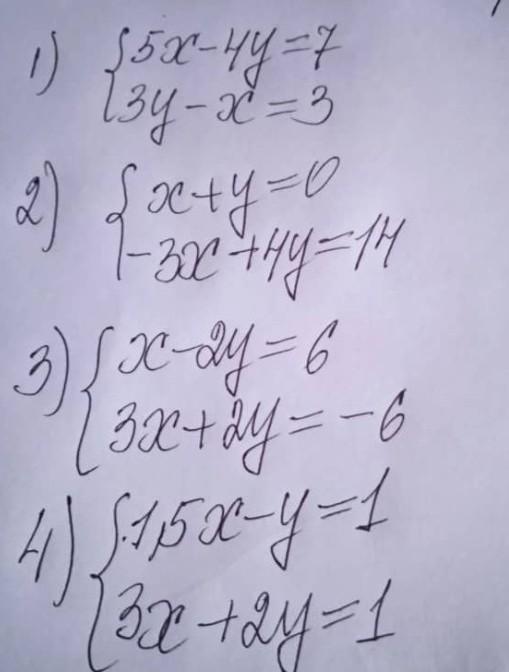 1) {5x-4y=7
3y-x=3
2) {x+y=0
-3x+4y=14
3) {x-2y=6
3x+2y=-6
4) {1,5x-y=1
3x+2y=1